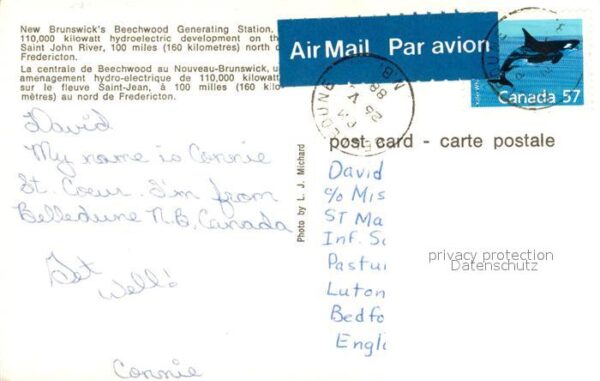 New Brunswick's Beechwood Generating Station,
110,000 kilowatt hydroelectric development on th
Saint John River, 100 miles (160 kilometres) north o
Fredericton.
La centrale de Beechwood au Nouveau-Brunswick, u
aménagement hydro-electrique de 110,000 kilowatt
sur le fleuve Saint-Jean, à 100 milles (160 kilo-
mètres) au nord de Fredericton.
Air Mail Par avion
Canada 57
post card - carte postale
Photo by L. J. Michard
David
My name is Connie
St. Coeur. I'm from
Belledune N.B. Canada
Get
Well!
Connie
David
c/o Mis
ST Ma
Inf. Sc
Pastur
Luton
Bedfo
Engl
privacy protection
Datenschutz